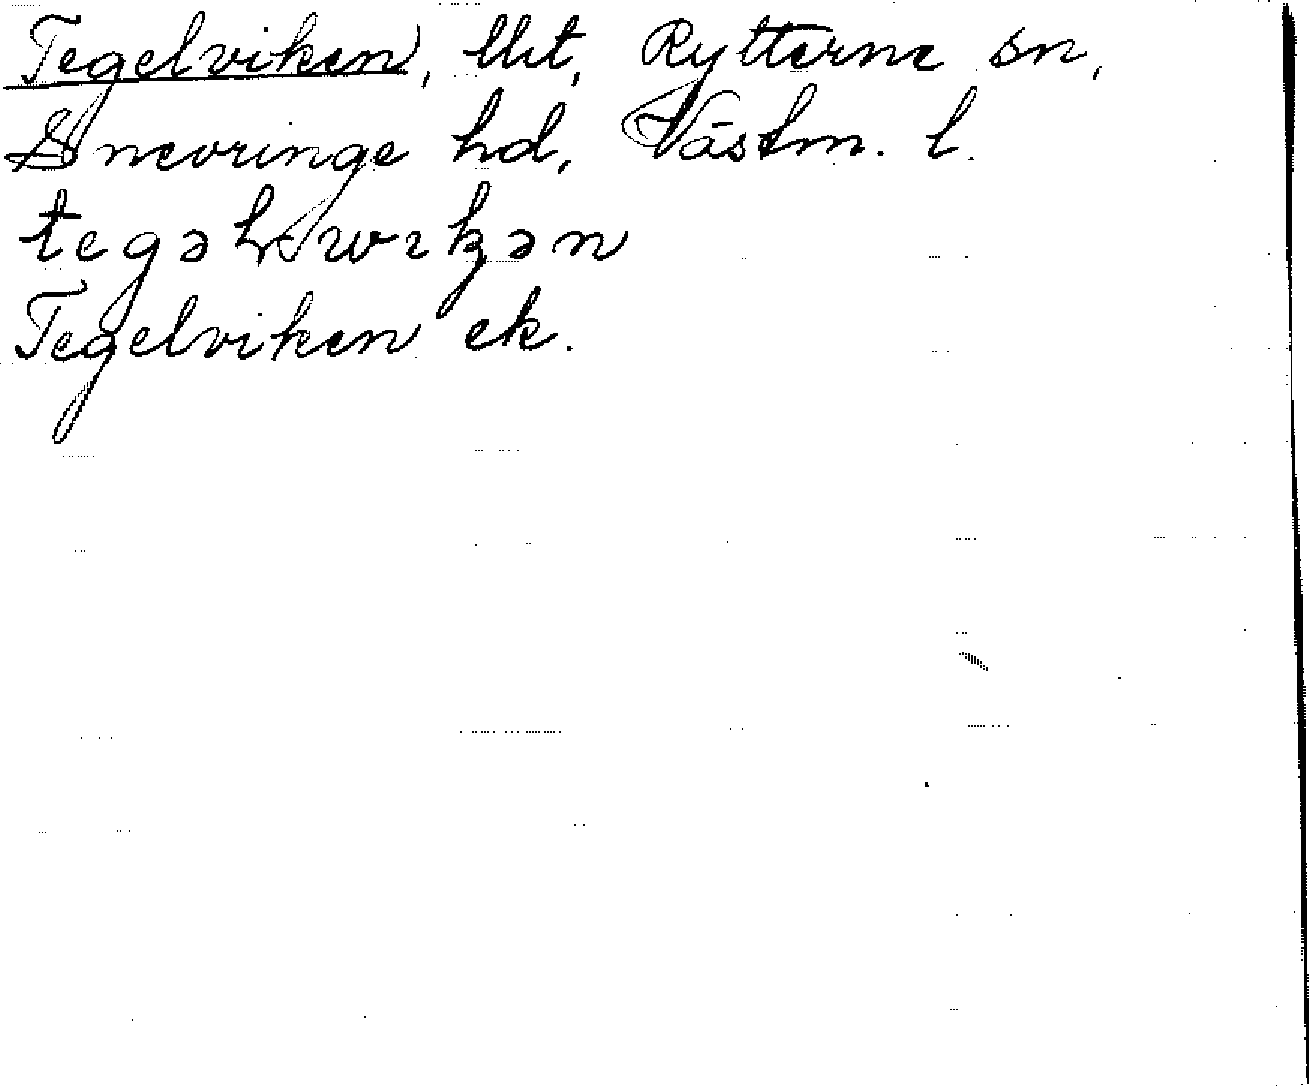 Tegelviken, lht, Rytterne sn,
Snevringe hd, Västm. l.
Tegelviken ek.